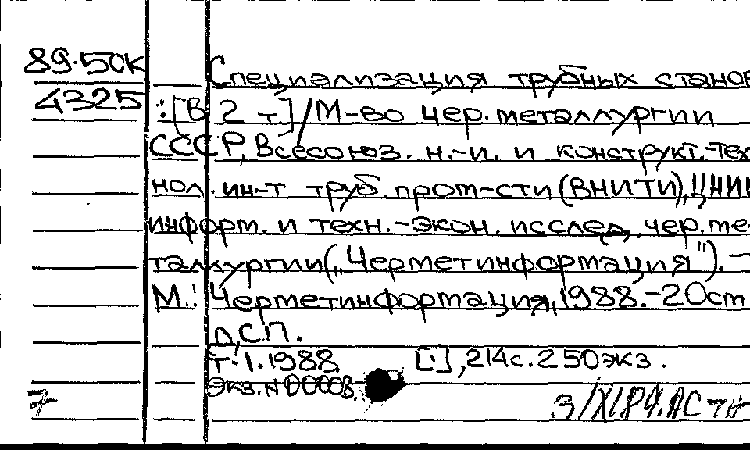 89-50К
Специализация трубных станов
4325 :[В 2 т.]/М-во чер.металлургии
СССР, Всесоюз. н.-и. и конструкт.-тех
нол. ин-т труб.пром-сти(ВНИТИ),ЦНИИ
информ. и техн.-экон. исслед. чер.ме-
таллургии("Черметинформация").-
М.: Черметинформация,1988.-20см
ДСП.
Т.1.1988 [.],214с.250экз.
Экз.N00008.